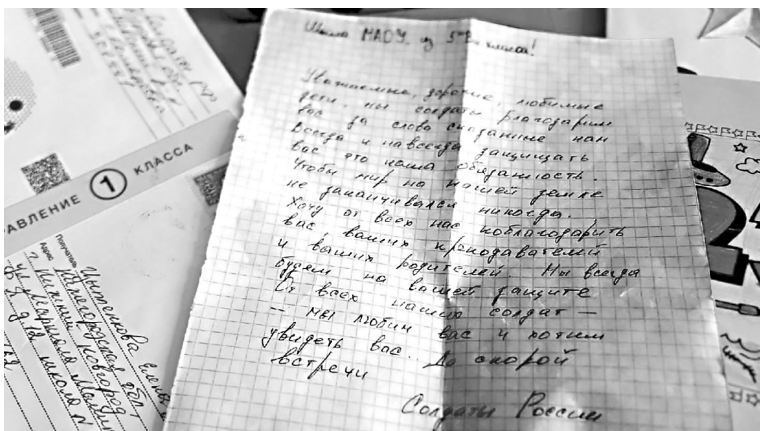 Школа МАОУ, из 5 класса!
Уважаемые, дорогие, любимые
дети, мы солдаты благодарим
вас за слова сказанные нам
Всегда и навсегда защищать
вас это наша обязанность.
Чтобы мир на нашей земле
не заканчивался никогда.
Хочу от всех нас поблагодарить
вас, ваших преподавателей
и ваших родителей. Мы всегда
будем на вашей защите
От всех наших солдат —
— мы любим вас и хотим
увидеть вас... До скорой
встречи
Солдаты России
АВЛЕНИЕ 1 КЛАССА
Получатель
Адрес
Елены
Нижегородская обл
г. Нижний Новгород
школа N